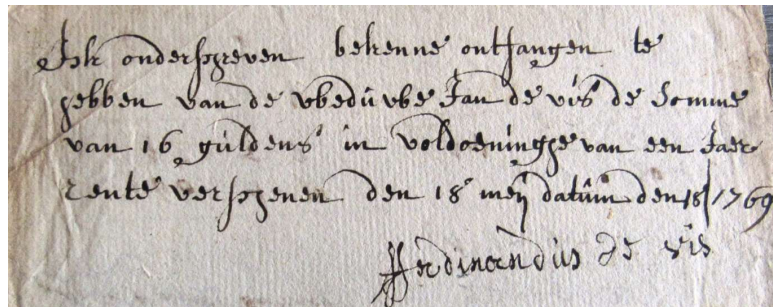 Ick onderschreven bekenne ontfangen te
hebben van de weduwe Jan de vis de somme
van 16 guldens in voldoeninghe van een Jaer
rente verschenen den 18 meij datum den 18 / 1769
Ferdinandus de vis